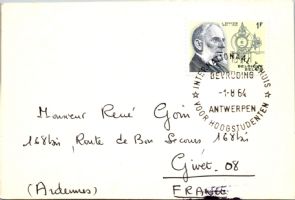 1F
BEVRIJDING
-1-8 64
ANTWERPEN
VOOR HOOGSTUDENTEN
Monsieur René Goin
168bis, Route de Bon Secours 168bis
Givet. 08
(Ardennes) FRANCE